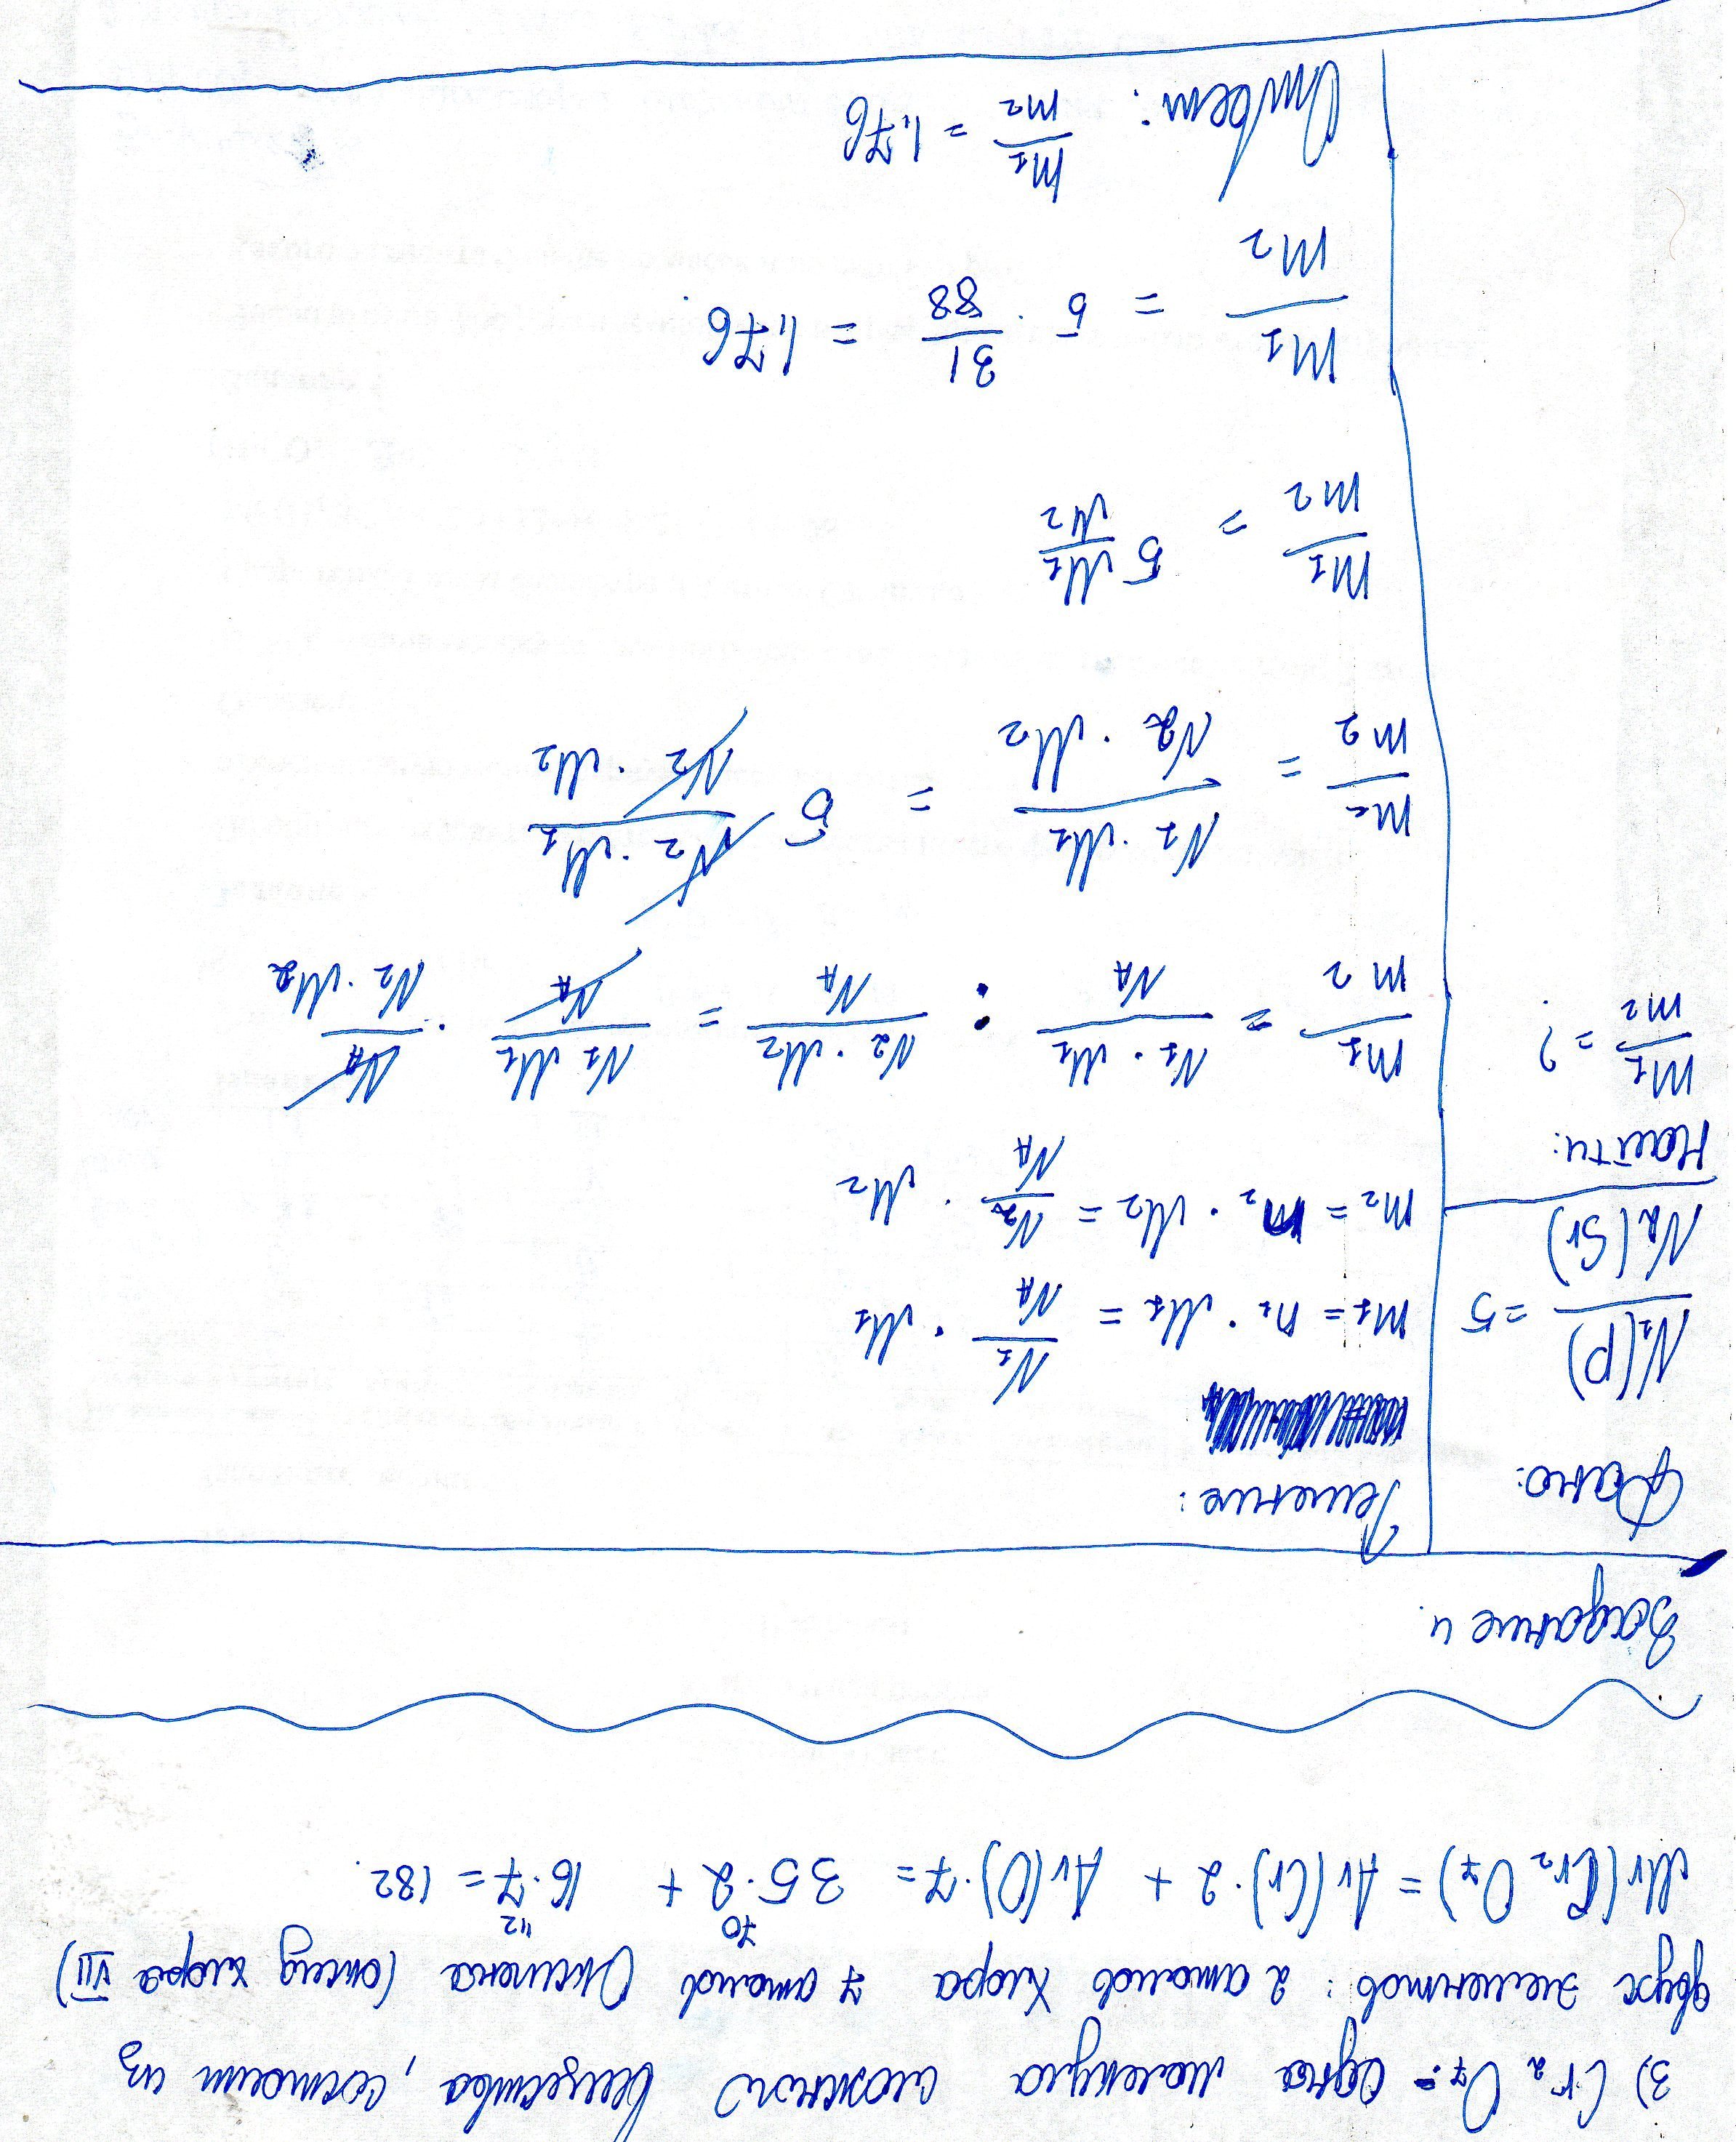 3) Cr₂O₇ - одна молекула сложного вещества, состоит из
двух элементов: 2 атомов хлора 7 атомов Оксигена (оксид хлора VII)
Mr(Cr₂O₇) = Ar(Cr)·2 + Ar(O)·7 = 35·2 + 16·7 = 182.
70 112
Задание 4.
Дано:
N₁(P)/N₂(Sr) = 5
Найти:
m₁/m₂ = ?
Решение:
m₁ = n₁ · M₁ = N₁/NA · M₁
m₂ = n₂ · M₂ = N₂/NA · M₂
m₁/m₂ = N₁·M₁/NA : N₂·M₂/NA = N₁M₁/NA · NA/N₂·M₂
m₁/m₂ = N₁·M₁/N₂·M₂ = 5 N₂·M₁/N₂·M₂
m₁/m₂ = 5 M₁/M₂
m₁/m₂ = 5 · 31/88 = 1,76.
Ответ: m₁/m₂ = 1,76